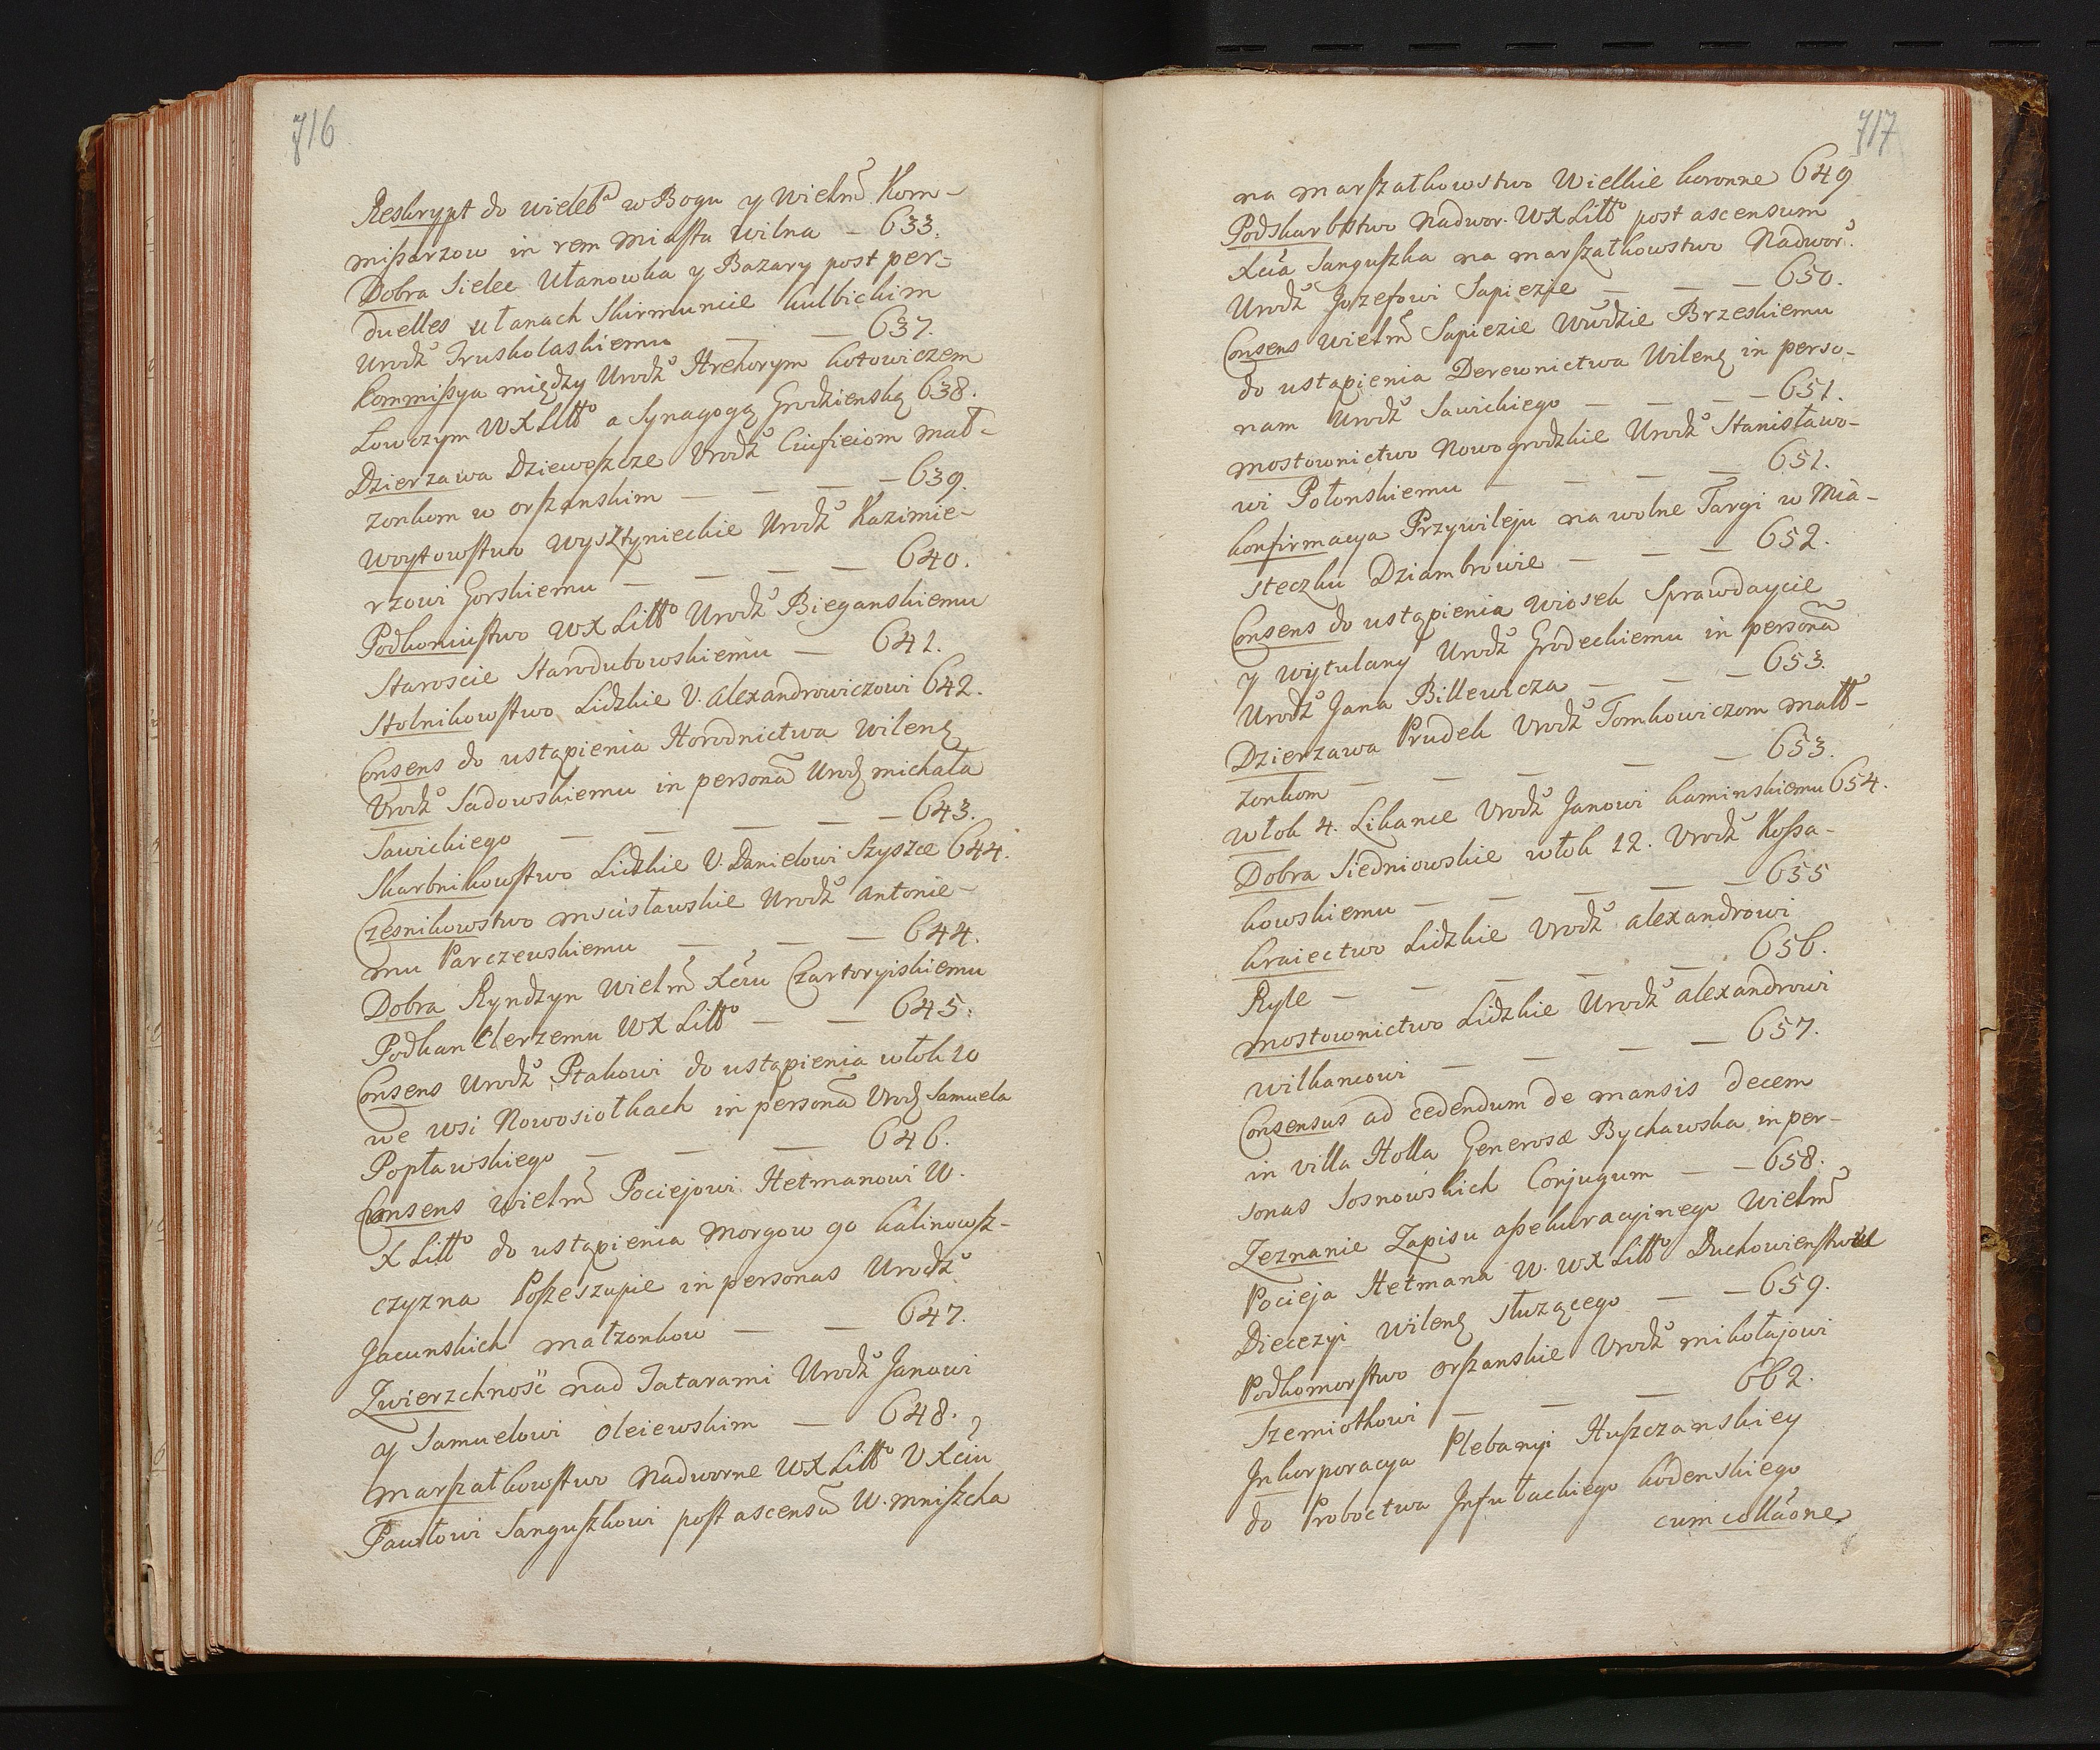 716
Reskrypt do wieleb w Bogu y Wielm Kom-
missarzow in rem Miasta Wilna — 633.
Dobra Sielec Ułanowka y Bazary post per-
duelles Ułanach Skirmuncie Kulbickim
Urodz Truskolaskiemu — — 637.
Kommissya między Urodz Hrehorym Kotowiczem
Łowczym WXLitto a Synagogą Grodzienską 638.
Dzierzawa Dziewoszcze Urodz Ciuficiom Mał-
zonkom w Orszanskim — — — — 639.
Woytowstwo Wysztynieckie Urodz Kazimie-
rzowi Gorskiemu — — — — 640.
Podkoniustwo WXLitto Urodz Bieganskiemu
Staroscie Starodubowskiemu — 641.
Stolnikowstwo Lidzkie U. Alexandrowiczowi 642.
Consens do ustąpienia Horodnictwa Wilen
Urodz Sadowskiemu in persona Urodz Michała
Sawickiego — — — — — 643.
Skarbnikowstwo Lidzkie U. Danielowi Szyszce 644.
Czesnikowstwo Mscisławskie Urodz Antonie-
mu Parczewskiemu — — — 644.
Dobra Ryndzyn Wielm Xciu Czartoryiskiemu
Podkanclerzemu WXLitto — — 645.
Consens Urodz Ptakowi do ustąpienia włok 10
we wsi Nowosiołkach in persona Urodz Samuela
Popławskiego — — — 646.
Consens Wielm Pociejowi Hetmanowi W.
XLitto do ustąpienia Morgow 90 Kalinowsz-
czyzna Poszeszupie in personas Urodz
Jacunskich małzonkow — — 647.
Zwierzchność nad Tatarami Urodz Janowi
y Samuelowi Oleiewskim — 648.
Marszałkowstwo Nadworne WXLitto U Xciu
Pawłowi Sanguszkowi post ascensu W. Mniszcha
717
na marszałkowstwo Wielkie koronne 649
Podskarbstwo Nadwor. WXLitto post ascensum
Xcia Sanguszka na marszałkowstwo Nadwor.
Urodz Jozefowi Sapiezie — — — 650.
Consens Wielm Sapiezie Wudzie Brzeskiemu
do ustąpienia Derewnictwa Wilen in perso-
nam Urodz Sawickiego — — — 651.
Mostownictwo Nowogrodzkie Urodz Stanisławo-
wi Połonskiemu — — — — 651.
Konfirmacya Przywileju na wolne Targi w Mia-
steczku Dziambrowie — — — 652.
Consens do ustąpienia wiosek Sprawdaycie
y Wytulany Urodz Grodeckiemu in persona
Urodz Jana Billewicza — — — 653.
Dzierzawa Prudek Urodz Tomkowiczom matt-
zonkom — — — — — 653.
Włok 4. Likance Urodz Janowi Kaminskiemu 654.
Dobra Siedniowskie włok 12. Urodz Kossa-
kowskiemu — — — — — 655
Kraiectwo Lidzkie Urodz Alexandrowi
Ryle — — — — — 656.
Mostownictwo Lidzkie Urodz Alexandrowi
Wilkancowi — — — — 657.
Consensus ad cedendum de mansis decem
in villa Holla Generosæ Bychawska in per-
sonas Sosnowskich Conjugum — — 658.
Zeznanie Zapisu assekuracyinego Wielm
Pocieja Hetmana W. WXLitto Duchowienstwu
Diecezyi Wilen słuzącego — — 659.
Podkomorstwo Orszanskie Urodz Mikołajowi
Szemiotkowi — — — 662.
Inkorporacya Plebanyi Huszczanskiey
do Proboctwa Infułackiego Kodenskiego
cum collaone